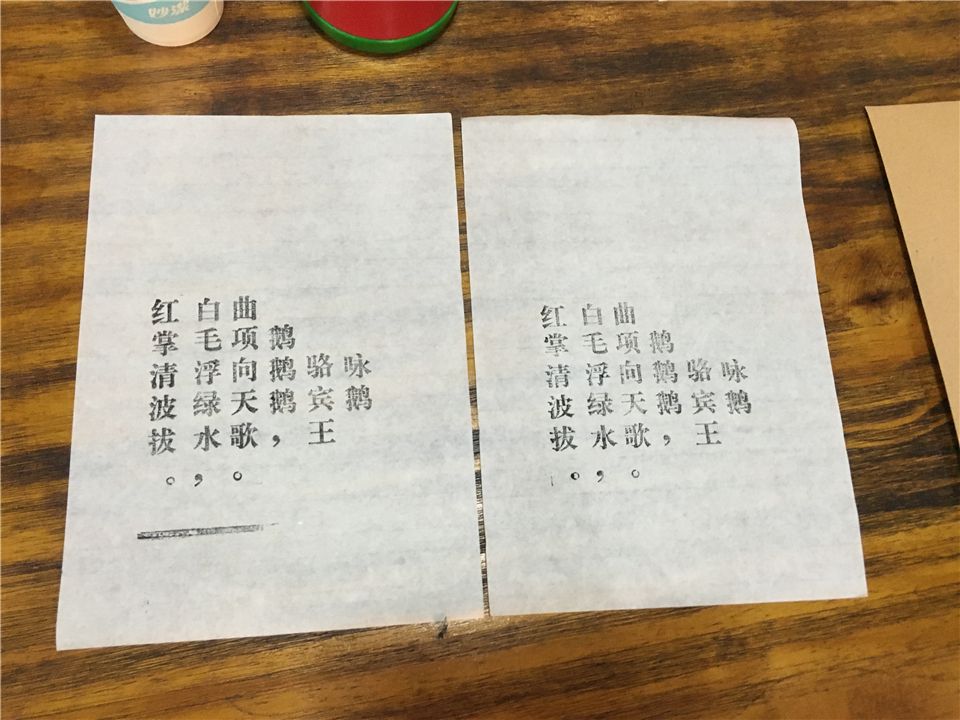 妙潔
咏鹅
骆宾王
鹅鹅鹅，
曲项向天歌。
白毛浮绿水，
红掌清波拔。
咏鹅
骆宾王
鹅鹅鹅，
曲项向天歌。
白毛浮绿水，
红掌清波拔。